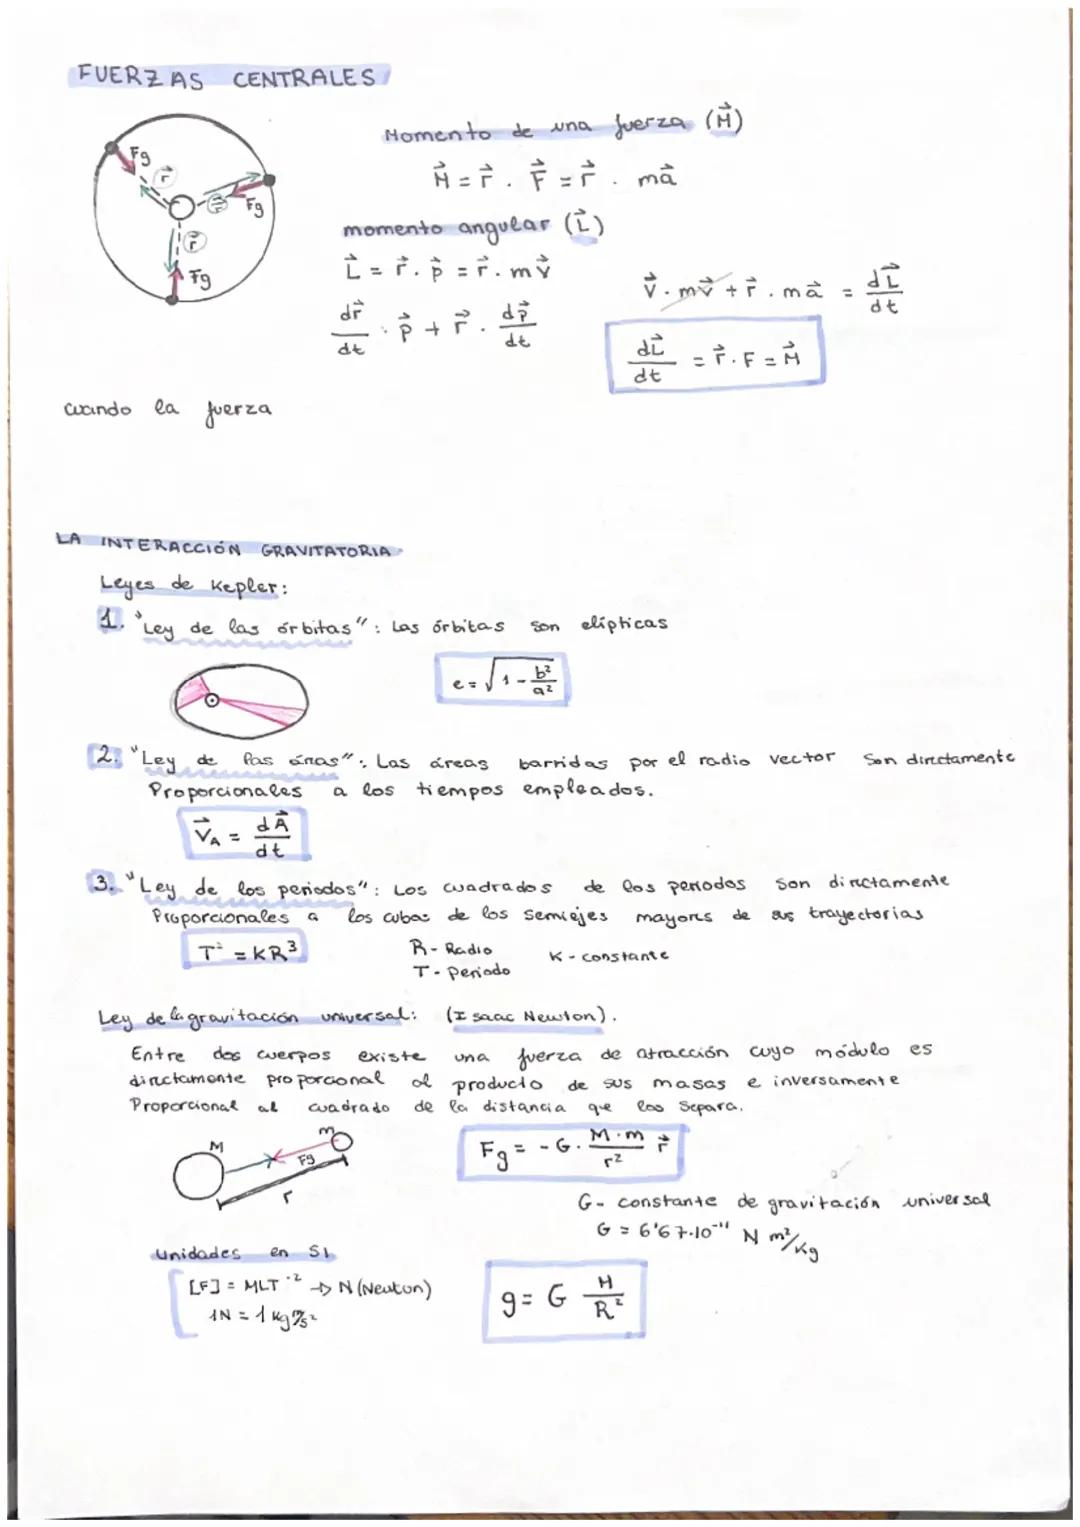 FUERZAS CENTRALES
Fg
r⃗
r⃗
Fg
r⃗
Fg
Momento de una fuerza (M⃗)
M⃗ = r⃗ . F⃗ = r⃗ . ma⃗
momento angular (L⃗)
L⃗ = r⃗ . p⃗ = r⃗ . mv⃗
dr⃗/dt . p⃗ + r⃗ . dp⃗/dt
v⃗ . mv⃗ + r⃗ . ma⃗ = dL⃗/dt
dL⃗/dt = r⃗ . F = M⃗
cuando la fuerza
LA INTERACCIÓN GRAVITATORIA
Leyes de Kepler:
1. "Ley de las órbitas": Las órbitas son elípticas
e = √1 - b²/a²
2. "Ley de las áreas": Las áreas barridas por el radio vector son directamente
Proporcionales a los tiempos empleados.
V⃗A = dA⃗/dt
3. "Ley de los periodos": Los cuadrados de los periodos son directamente
Proporcionales a los cubos de los semiejes mayores de sus trayectorias
T² = KR³
R - Radio
T - Periodo
K - constante
Ley de la gravitación universal: (Isaac Newton).
Entre dos cuerpos existe una fuerza de atracción cuyo módulo es
directamente proporcional al producto de sus masas e inversamente
Proporcional al cuadrado de la distancia que los separa.
M
m
Fg
r
Fg = - G . M · m / r² r⃗
G - constante de gravitación universal
G = 6'67·10⁻¹¹ N m²/kg
Unidades en SI
[F] = MLT⁻² → N (Newton)
1N = 1 kg m/s²
g = G M/R²